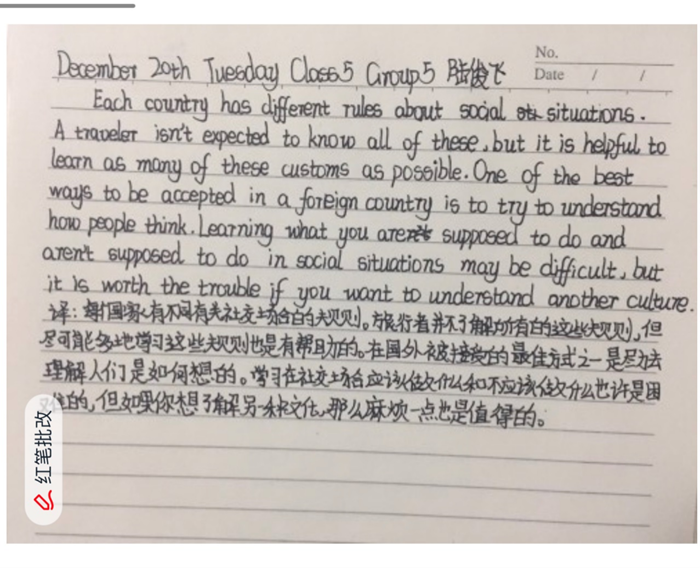 No.
Date / /
December 20th Tuesday Class5 Group5 陆俊飞
Each country has different rules about social situations.
A traveler isn't expected to know all of these, but it is helpful to
learn as many of these customs as possible. One of the best
ways to be accepted in a foreign country is to try to understand
how people think. Learning what you are supposed to do and
aren't supposed to do in social situations may be difficult, but
it is worth the trouble if you want to understand another culture.
译:每个国家有不同有关社交场合的规则。旅行者并不了解所有的这些规则,但
尽可能多地学习这些规则也是有帮助的。在国外被接受的最佳方式之一是尽力去
理解人们是如何想的。学习在社交场合应该做什么和不应该做什么也许是困
的,但如果你想了解另一种文化,那么麻烦一点也是值得的。
红笔批改